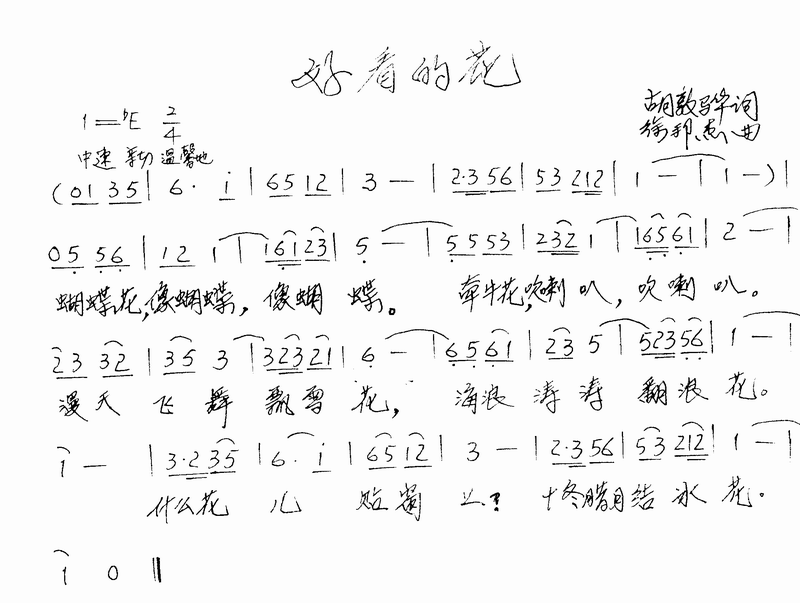 好看的花
1=♭E 2/4
胡敦骅词
中速 亲切 温馨地
徐邦杰曲
(01 35 | 6· i | 65 12 | 3 — | 2·3 56 | 53 212 | 1 — | 1 —) |
05 56 | 12 1 | 161 23 | 5 — | 55 53 | 232 1 | 165 61 | 2 —
蝴蝶花,像蝴蝶, 像蝴蝶。 牵牛花,吹喇叭, 吹喇叭。
23 32 | 35 3 | 323 21 | 6 — | 65 61 | 23 5 | 523 56 | 1 —
漫天飞舞飘雪花, 海浪涛涛翻浪花。
1 — | 3·2 35 | 6· i | 65 12 | 3 — | 2·3 56 | 53 212 | 1 —
什么花儿贴窗上? 十冬腊月结冰花。
1 0 ‖